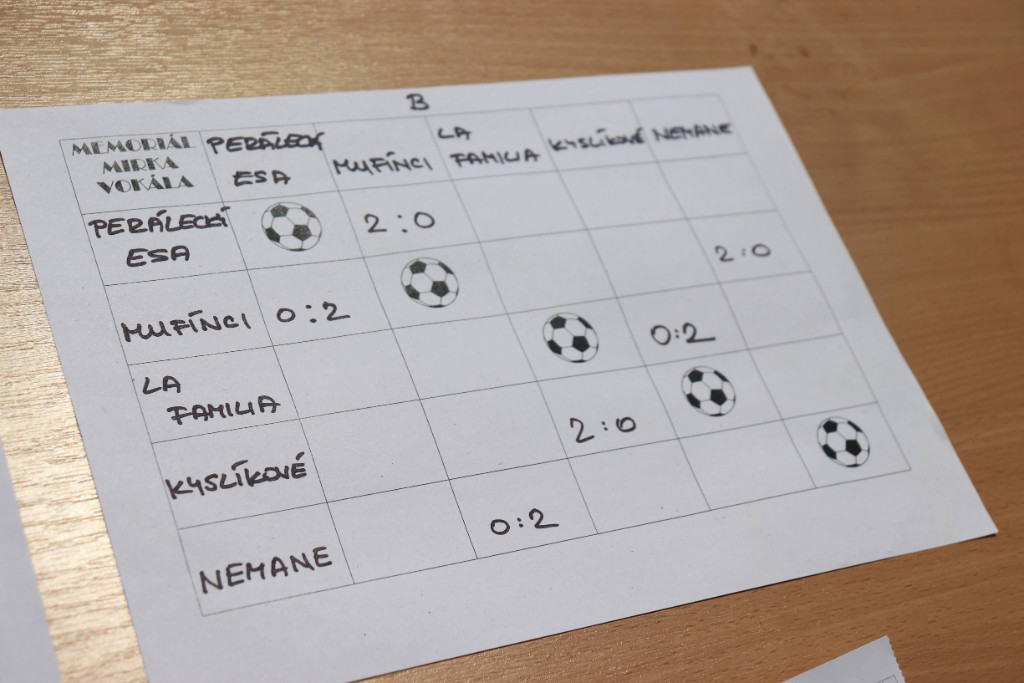 B
MEMORIÁL
MIRKA
VOKÁLA
PERÁLECKÝ
ESA
MUFÍNCI
LA
FAMILIA
KYSLÍKOVÉ
NEMANE
PERÁLECKÁ
ESA
2:0
MUFÍNCI
0:2
2:0
LA
FAMILIA
0:2
KYSLÍKOVÉ
2:0
NEMANE
0:2